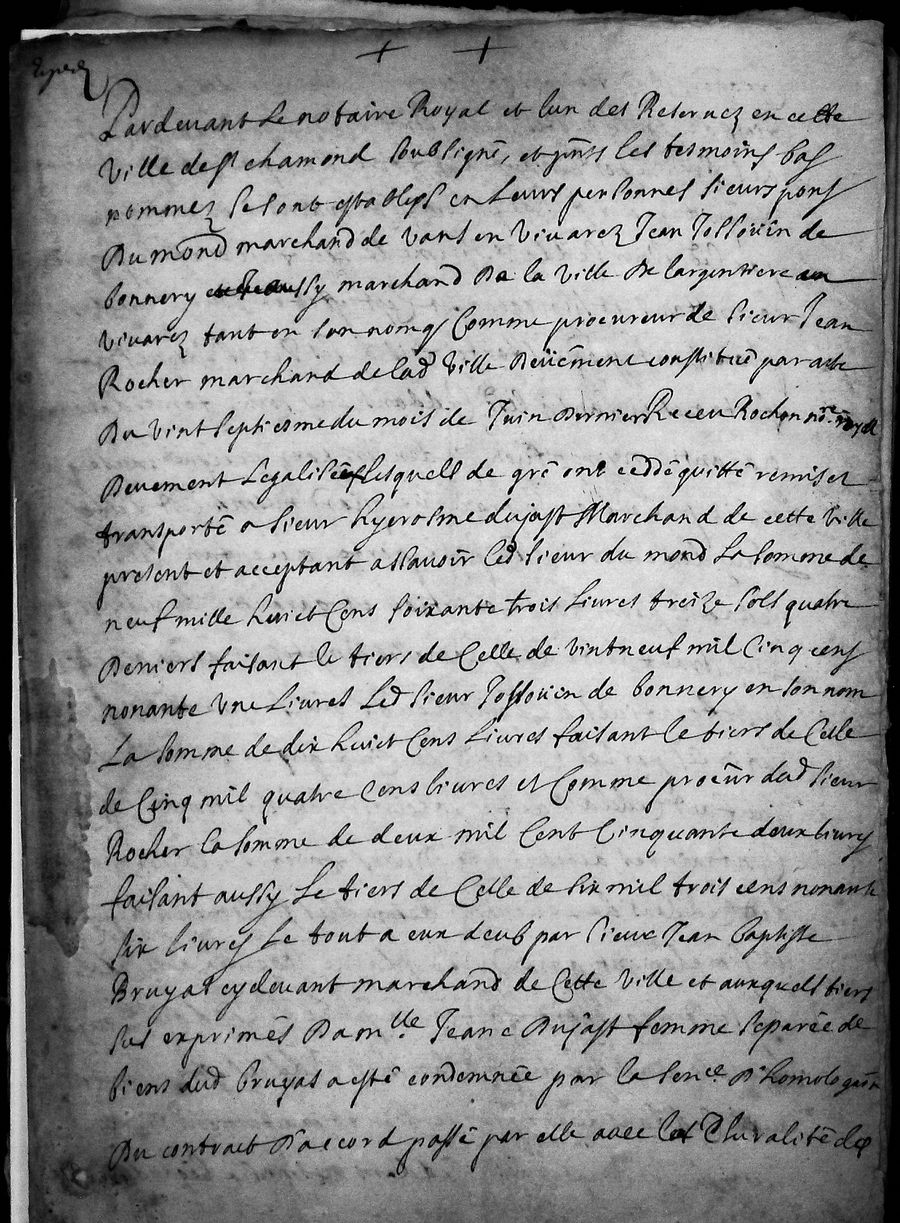 Pardevant Le notaire Royal et lun des Reservez en cette
Ville de st chamond soubsigné, et pnts les tesmoins bas
nommez se sont establys en Leurs personnes sieurs pons
Du mond marchand de vans en vivarez Jean Jossouin de
bonnery aussy marchand De la ville De largentiere en
vivarez tant en son nom q Comme procureur de sieur Jean
Rocher marchand de lad ville Deüement constitué par acte
Du vint septiesme du mois de Juin Dernier Receu Rochon nre royal
Deuement Legalisée Lesquels de gré ont ceddé quitté remis et
transporté a sieur hyerosme dujast Marchand de cette ville
present et acceptant assavoir led sieur du mond La somme de
neuf mille huict Cens soixante trois Livres treize sols quatre
Deniers faisant le tiers de Celle de vintneuf mil Cinq cens
nonante une Livres Led sieur Jossouin de bonnery en son nom
La somme de dix huict Cens Livres faisant Le tiers de Celle
de Cinq mil quatre Cens livres et Comme proceur dud sieur
Rocher la somme de deux mil Cent Cinquante deux livres
faisant aussy Le tiers de Celle de six mil trois cens nonante
six livres Le tout a eux deub par sieur Jean baptiste
Bruyas cydevant marchand de Cette ville et auxquels tiers
sus exprimés Damlle Jeane Dujast femme separée de
biens dud bruyas a esté condemnée par la sence D'homologaon
Du contract D'accord passé par elle avec la pluralité des